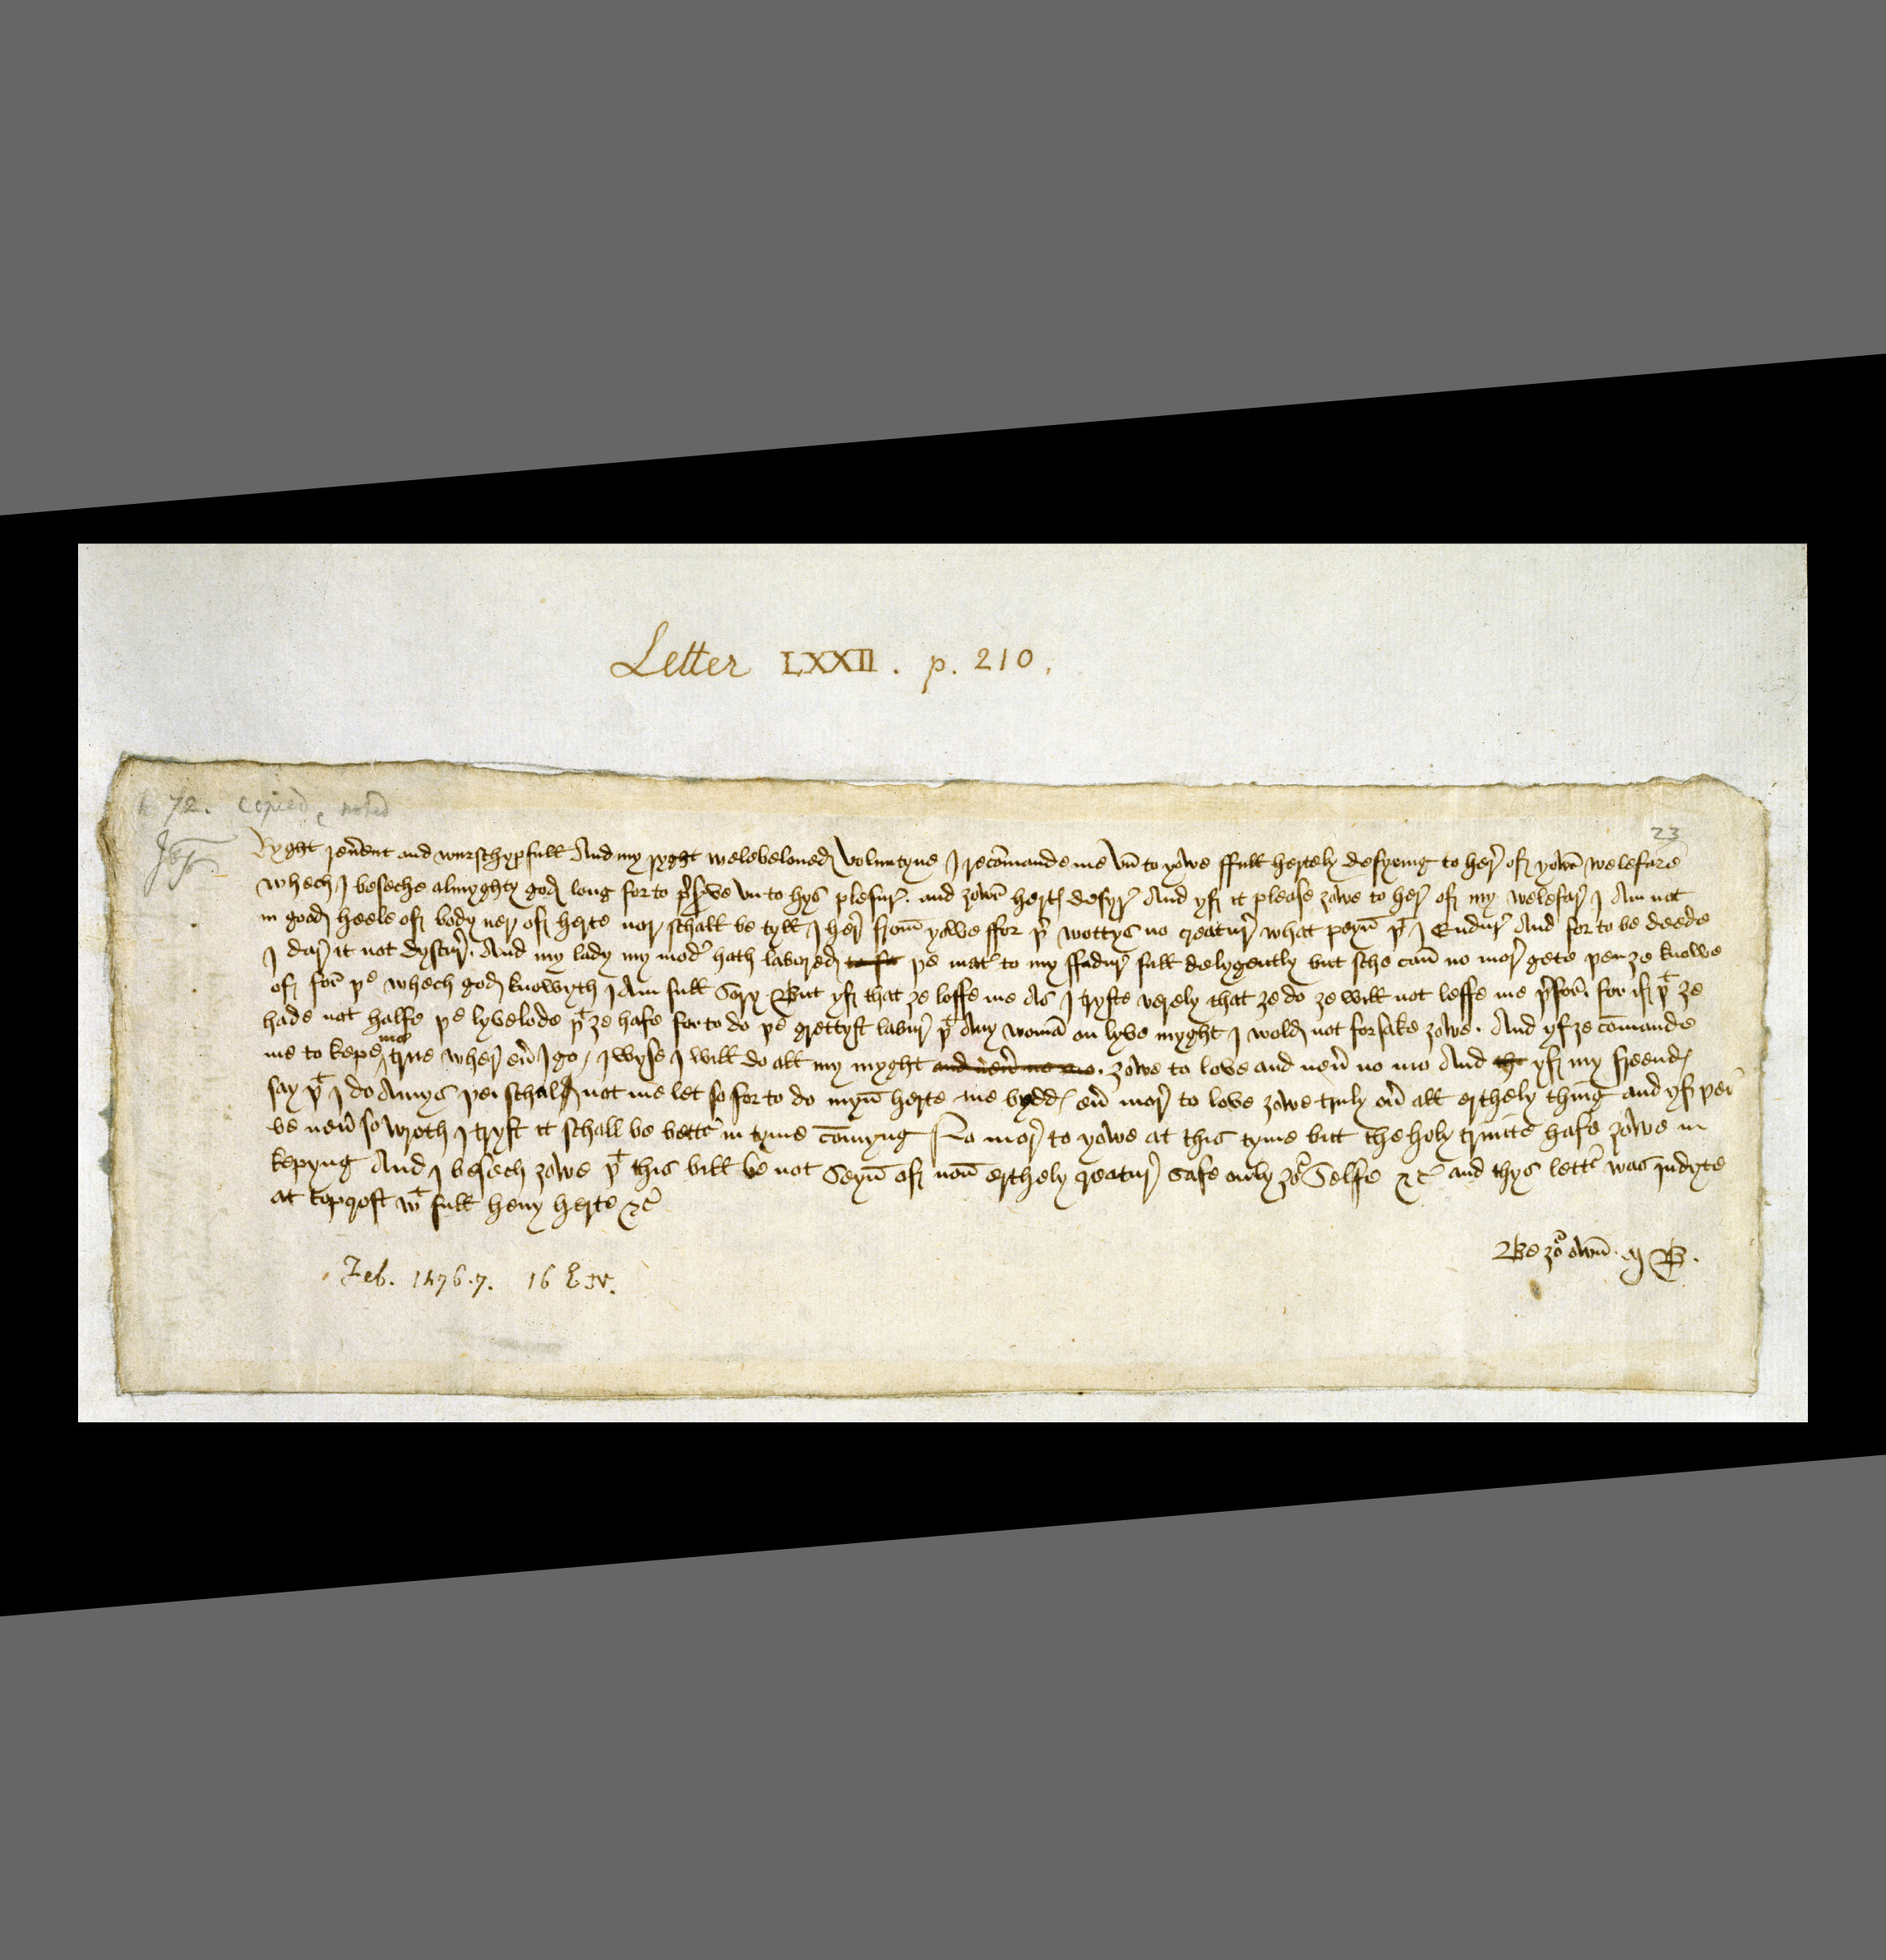 Letter LXXII. p. 210.
h 72. copied & noted
23
Jhs
Ryght reũent and wurschypfull And my ryght welebeloued Voluntyne J recõmande me vn to yowe ffull hertely desyring to her̃ off yowr̃ welefare
whech J beseche almyghty god long for to p̃s̃ve vn to hys plesur̃. and ȝowr̃ hert̨ desyr̃ And yff it please ȝowe to her̃ off my welefar̃ J Am not
in good heele off body ner off herte nor schall be tyll J her̃ from̃ yowe ffor þr̃ wottys no creatur̃ what peyñ þᵗ J Endur̃ And for to be deede
J dar̃ it not dyscur̃. And my lady my mod̃ hath labored to ff þe mat̃ to my ffadur̃ full delygently but sche can̄ no mor̃ gete þen ȝe knowe
off for̃ þᵉ whech god knowyth J Am full Sory. But yff that ȝe loffe me As J tryste verely that ȝe do ȝe will not leffe me þr̃for̃. for iff þᵗ ȝe
hade not halfe þe lyvelode þᵗ ȝe hafe for to do þe grettyst labur̃ þᵗ Any womã on lyve myght J wold not forsake ȝowe. And yf ȝe cõmande
me to kepe me true wher eũ J go, J wyse J will do all my myght and neũ no mo. ȝowe to love and neũ no mo And th yff my freend̨
say þᵗ J do Amys þei schall not me let so for to do myñ herte me bydd̨ eũ mor̃ to love ȝowe truly oũ all erthely thing and yff þei
be neũ so wroth J tryst it schall be bett̃ in tyme cõmyng No mor̃ to yowe at this tyme but the holy trinite hafe ȝowe in
kepyng And J besech ȝowe þᵗ this bill be not Seyñ off noñ erthely creatur̃ safe only ȝoʳ Selffe &c̃ and thys lett̃ was indyte
at topcroft wᵗ full heuy herte &c̃
Be ȝoʳ own̄. M B.
Feb. 1476.7. 16 E IV.